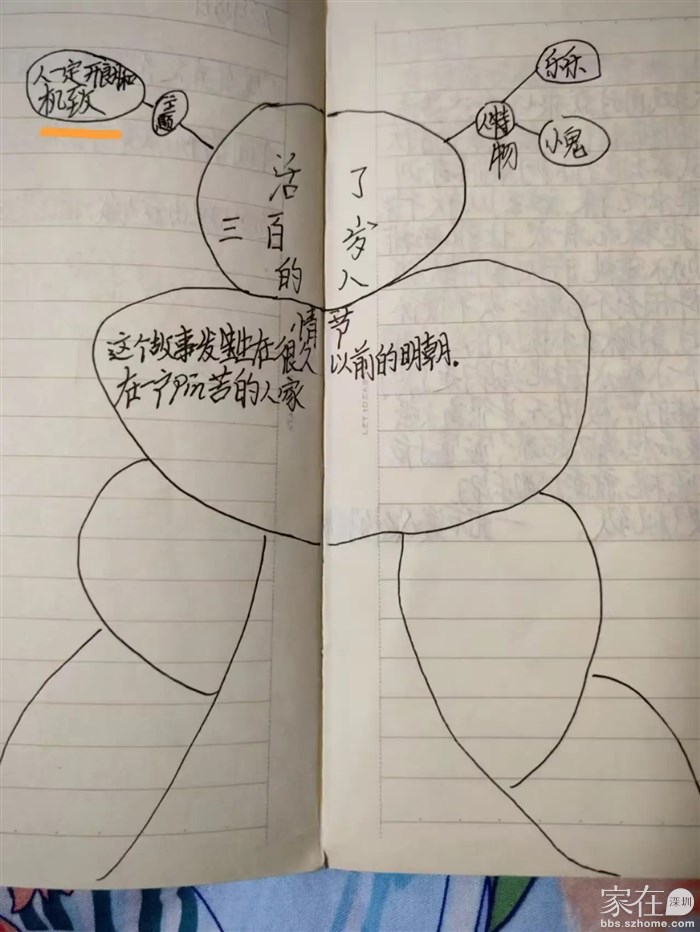 人一定开朗和
机致
主题
乐乐
人特
物
小鬼
活了
三百岁
的人
情节
这个故事发生在很久以前的明朝.
在一户玩苦的人家
家在深圳
bbs.szhome.com